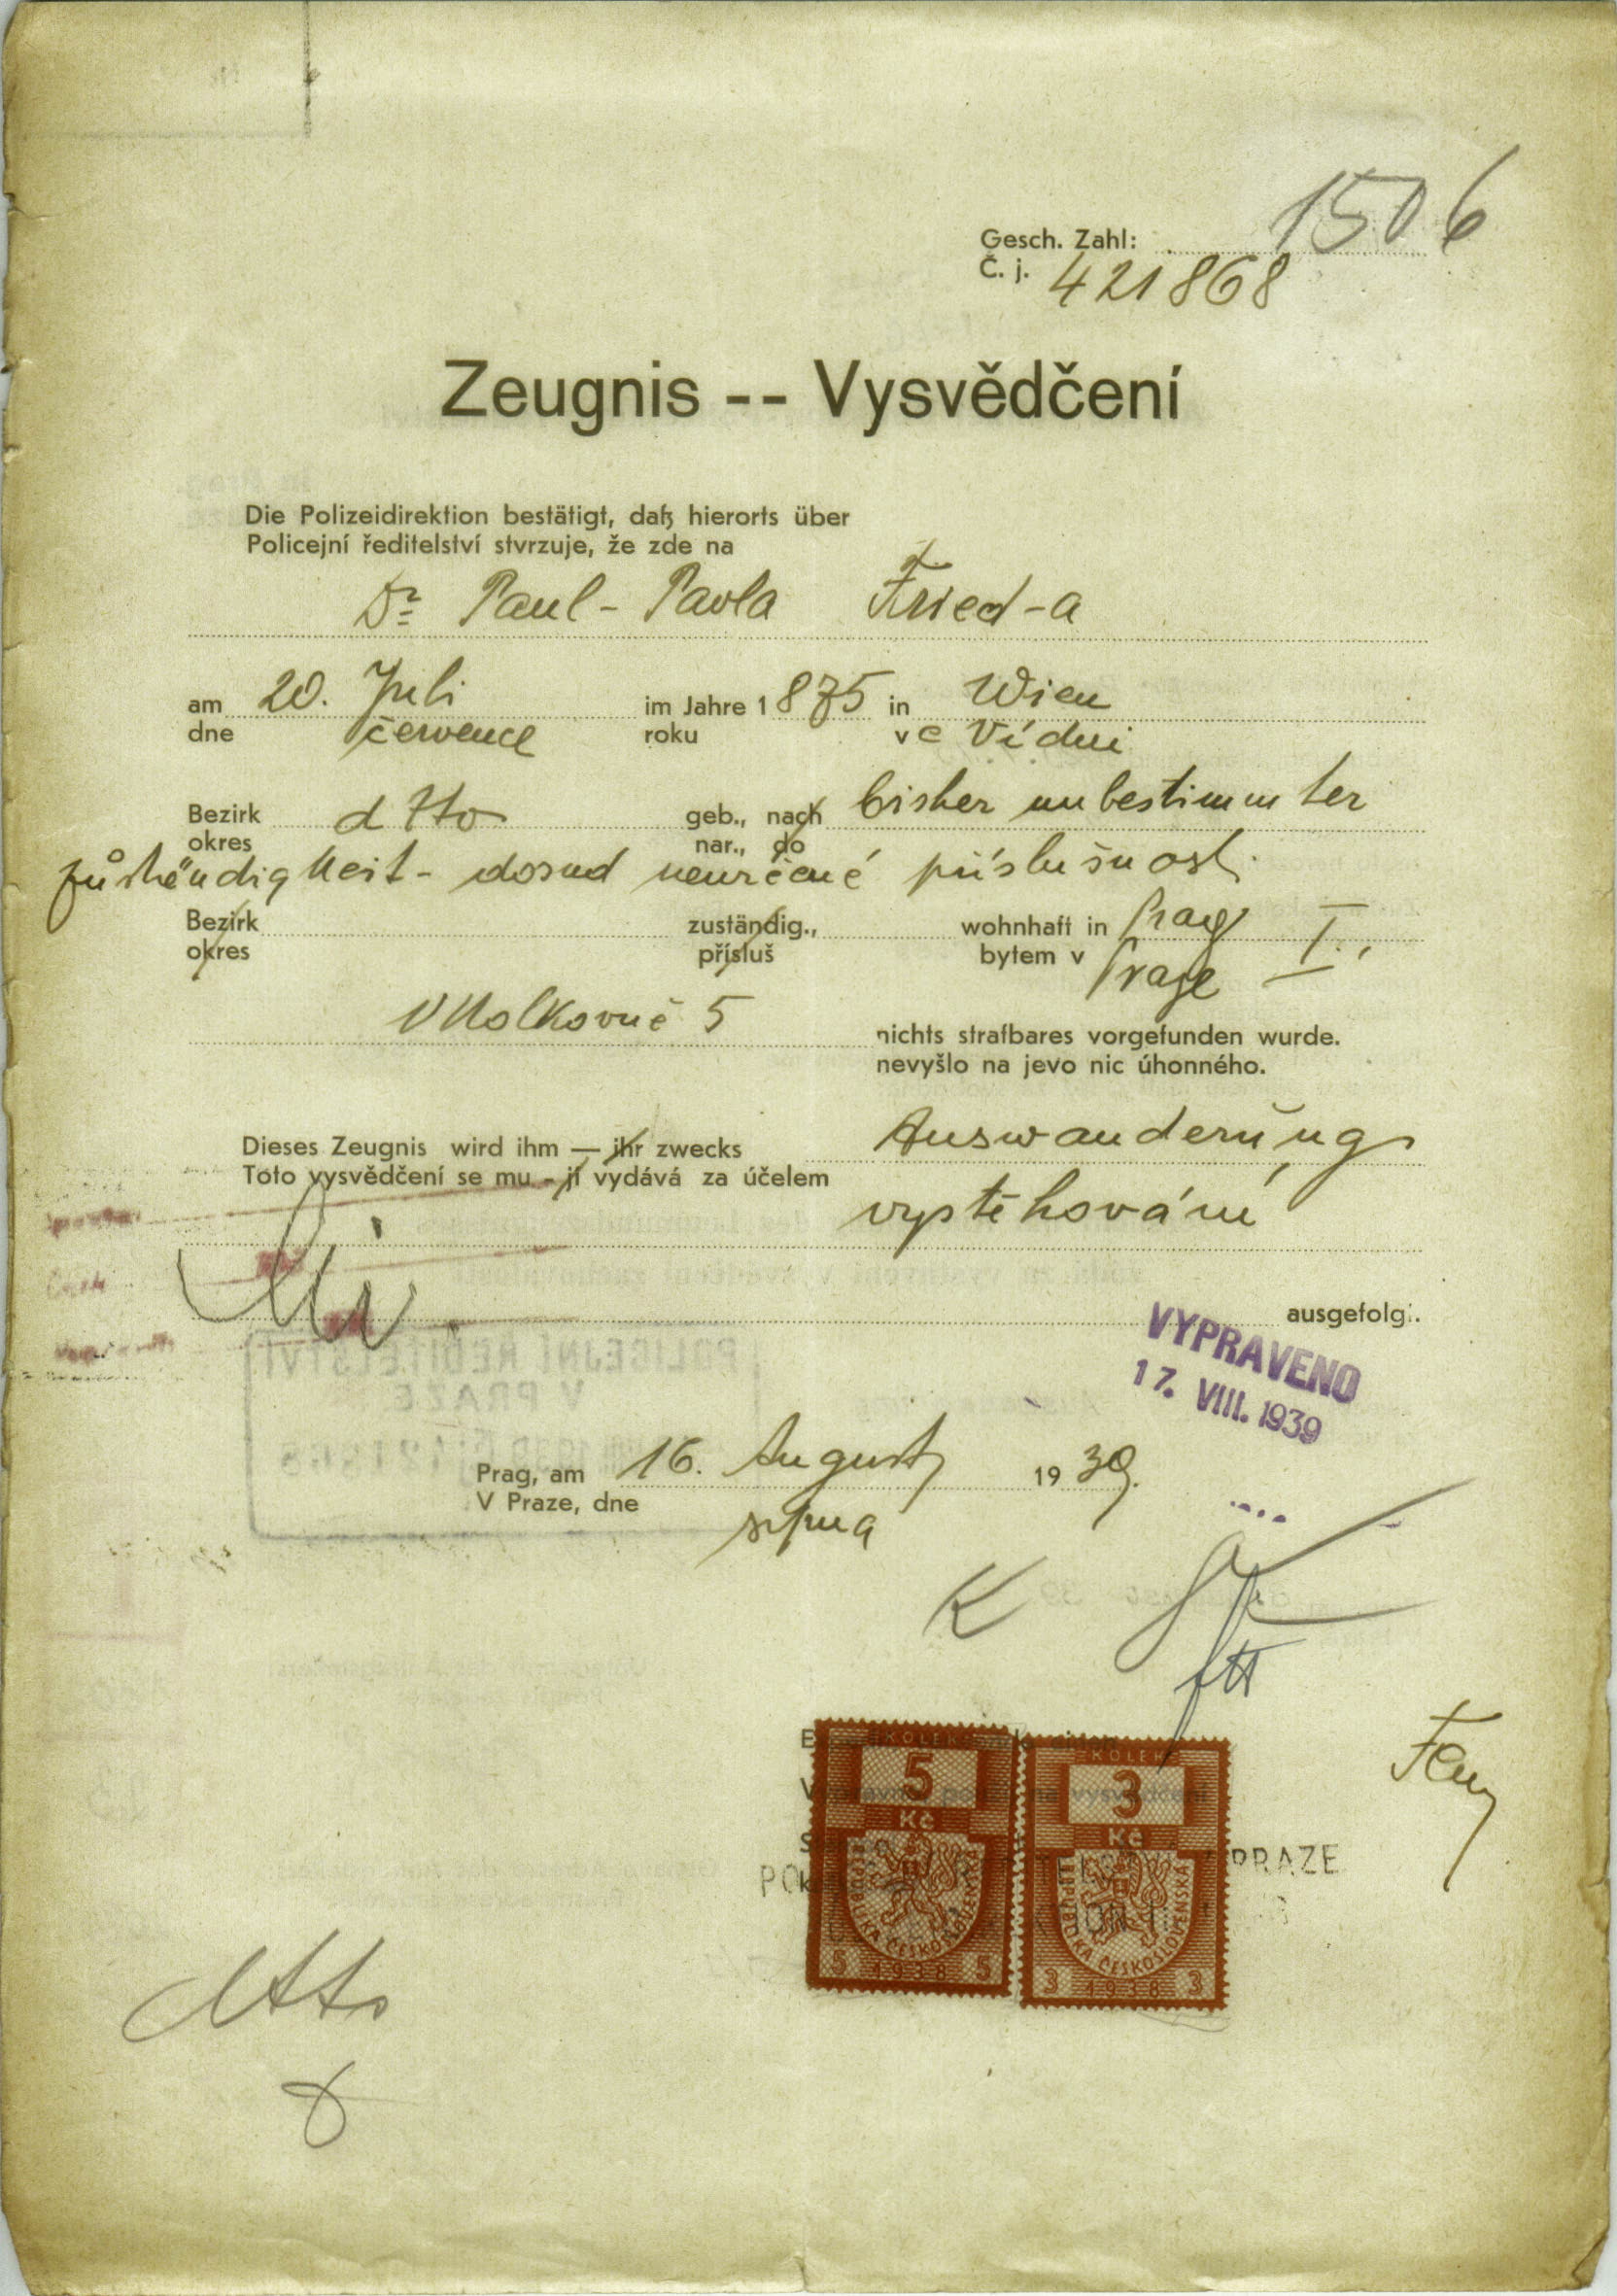 1506
Gesch. Zahl:
Č. j. 421868
Zeugnis -- Vysvědčení
Die Polizeidirektion bestätigt, daß hierorts über
Policejní ředitelství stvrzuje, že zde na
Dr Paul - Pavla Fried-a
am 20. Juli im Jahre 1875 in Wien
dne července roku ve Vídni
Bezirk dtto geb., nach bisher unbestimmter
okres nar., do
zůständigkeit - dosud neurčené příslušnosti.
Bezirk zuständig., wohnhaft in Prag I.,
okres přísluš bytem v Praze
V Kolkovně 5
nichts strafbares vorgefunden wurde.
nevyšlo na jevo nic úhonného.
Dieses Zeugnis wird ihm — ihr zwecks Auswanderung
Toto vysvědčení se mu - jí vydává za účelem
vystěhování
ausgefolgt.
VYPRAVENO
17. VIII. 1939
POLICEJNÍ ŘEDITELSTVÍ
V PRAZE
421868
Prag, am 16. August 1939.
V Praze, dne srpna
K
KOLEK KOLEK
5 3
Kč Kč
vysvědčení
PRAZE
REPUBLIKA ČESKOSLOVENSKÁ REPUBLIKA ČESKOSLOVENSKÁ
5 1938 5 3 1938 3